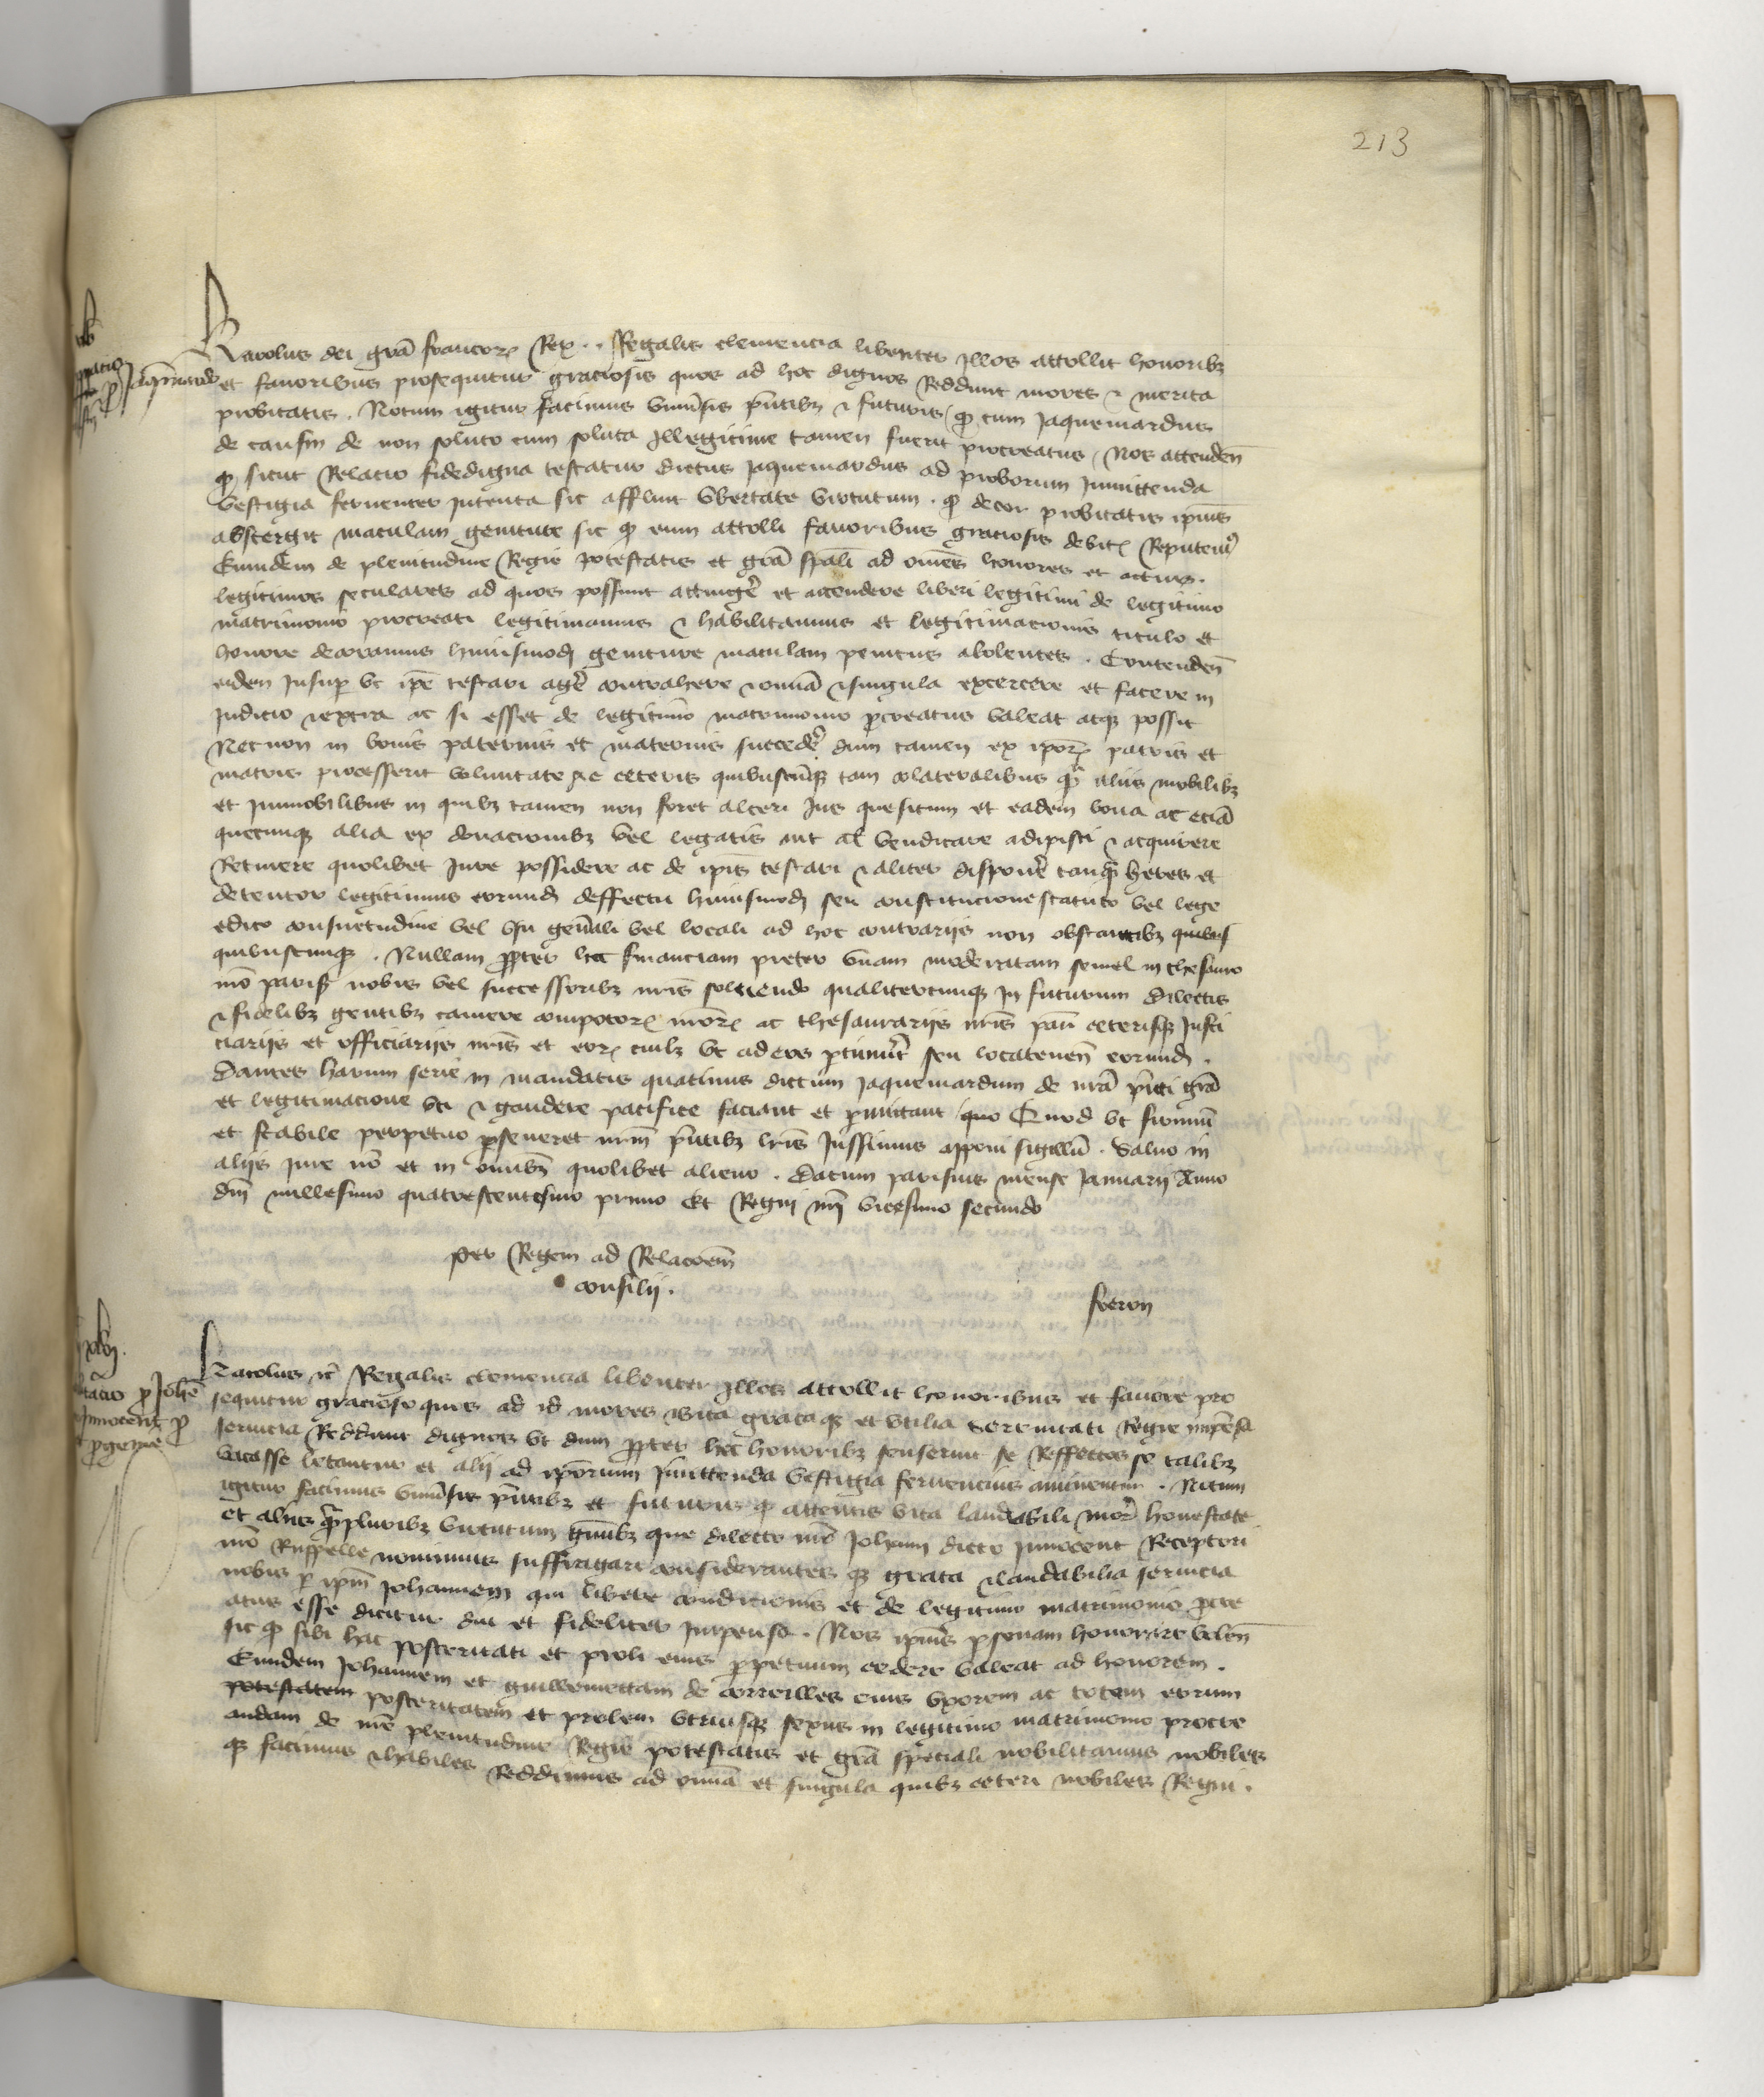 213
Karolus dei gra francor Rex. Regalis clemencia libenter illos attollit honoribz
et favoribus prosequitur graciosis quos ad hoc dignos Reddunt mores & merita
probitatis. Notum igitur facimus universis pntibz & futuris q cum Jaquemardus
de caussin de non soluto cum soluta illegitime tamen fuerit procreatus, Nos attenden
q sicut Relacio fidedigna testatur dictus Jaquemardus ad proborum immittenda
vestigia ferventer intenta sic affluit ubertate virtutum. q decor probitatis ipius
abstergit maculam geniture sic q eum attolli favoribus graciosis debite Reputemus
Eumdem de plenitudine Regie potestatis et gra spali ad omes honores et actus.
legitimos seculares ad quos possunt attinge et accendere liberi legitimi de legitimo
matrimonio procreati legitimamus & habilitamus et legitimacionis titulo et
honore decoramus huiusmodi geniture maculam penitus abolentes. Contenden
eidem Insup ut ipe testari age contrahere & omia & singula excercere et facere in
Judicio & extra ac si esset de legitimo matrimonio pcreatus valeat atqz possit
Necnon in bonis paternis et maternis succede dum tamen ex ipor patris et
matris processerit voluntate ac ceteris quibuscuqz tam colateralibus q aliis mobilibz
et Immobilibus in quibz tamen non foret alteri Jus quesitum et eadem bona ac etia
quecunqz alia ex donacionibz vel legatis aut al vendicare adipisci & acquirere
Retinere quolibet Jure possidere ac de ipis testari & aliter dispone tanq heres et
detentor legitimus eorund deffectu huiusmodi seu constitucione statuto vel lege
edicto consuetudine vel usu genali vel locali ad hoc contrariis non obstantibz quibus
quibuscunqz. Nullam propter hoc financiam preter unam moderatam semel in thesauro
nro parisius nobis vel successoribz nris solvendo qualitercunqz in futurum Dilectis
& fidelibz gentibz camere compotor nror ac thesaurariis nris paris ceterisqz Justi
ciariis et officiariis nris et eor cuilz ut ad eos ptinuit seu locatenen eorund.
Dantes harum serie in mandatis quatinus dictum Jaquemardum de nra pnti gra
et legitimacione uti & gaudere pacifice faciant et pmittant quo Quod ut firmum
et stabile perpetuo pseveret nrm pntibz lris Jussimus apponi sigillu. Salvo in
aliis Jure nro et in omibz quolibet alieno. Datum parisius mense Januarii Anno
dni millesimo quatrescentesimo primo Et Regni nri vicesimo secundo
per Regem ad Relacoem
consilii.
freron
Karolus etc Regalis clemencia libenter illos attollit honoribus et favore pro
sequitur gracioso quos ad id mores vita grata qz et utilia serenitati Regie impensa
servicia Reddunt dignos ut dum propter hoc honoribz senserint se Reffectos se talibz
vacasse letantur et alii ad ipsorum Imittenda vestigia fervencius animentur. Notum
igitur facimus universis pntibz et futuris q attentis vita laudabili mor honestate
et aliis qpluribz virtutum genibz que dilecto nro Johanni dicto Innocent Receptori
nro Ruppelle novimus suffragari considerantes qz grata & laudabilia servicia
nobis p ipm Johannem qui libere condicionis et de legitimo matrimonio pcre
atus esse dicitur diu et fideliter Impensa. Nos ipius psonam honorare volen
sic q sibi hac posteritati et proli eius ppetuum cedere valeat ad honorem.
Eundem Johannem et guillemettam de correilles eius uxorem ac totam eorum
potestatem posteritatem et prolem utriusqz sexus in legitimo matrimonio procre
andam de nre plenitudine Regie potestatis et gra speciali nobilitamus nobiles
qz facimus & habiles Reddimus ad omia et singula quibz ceteri nobiles Regni.